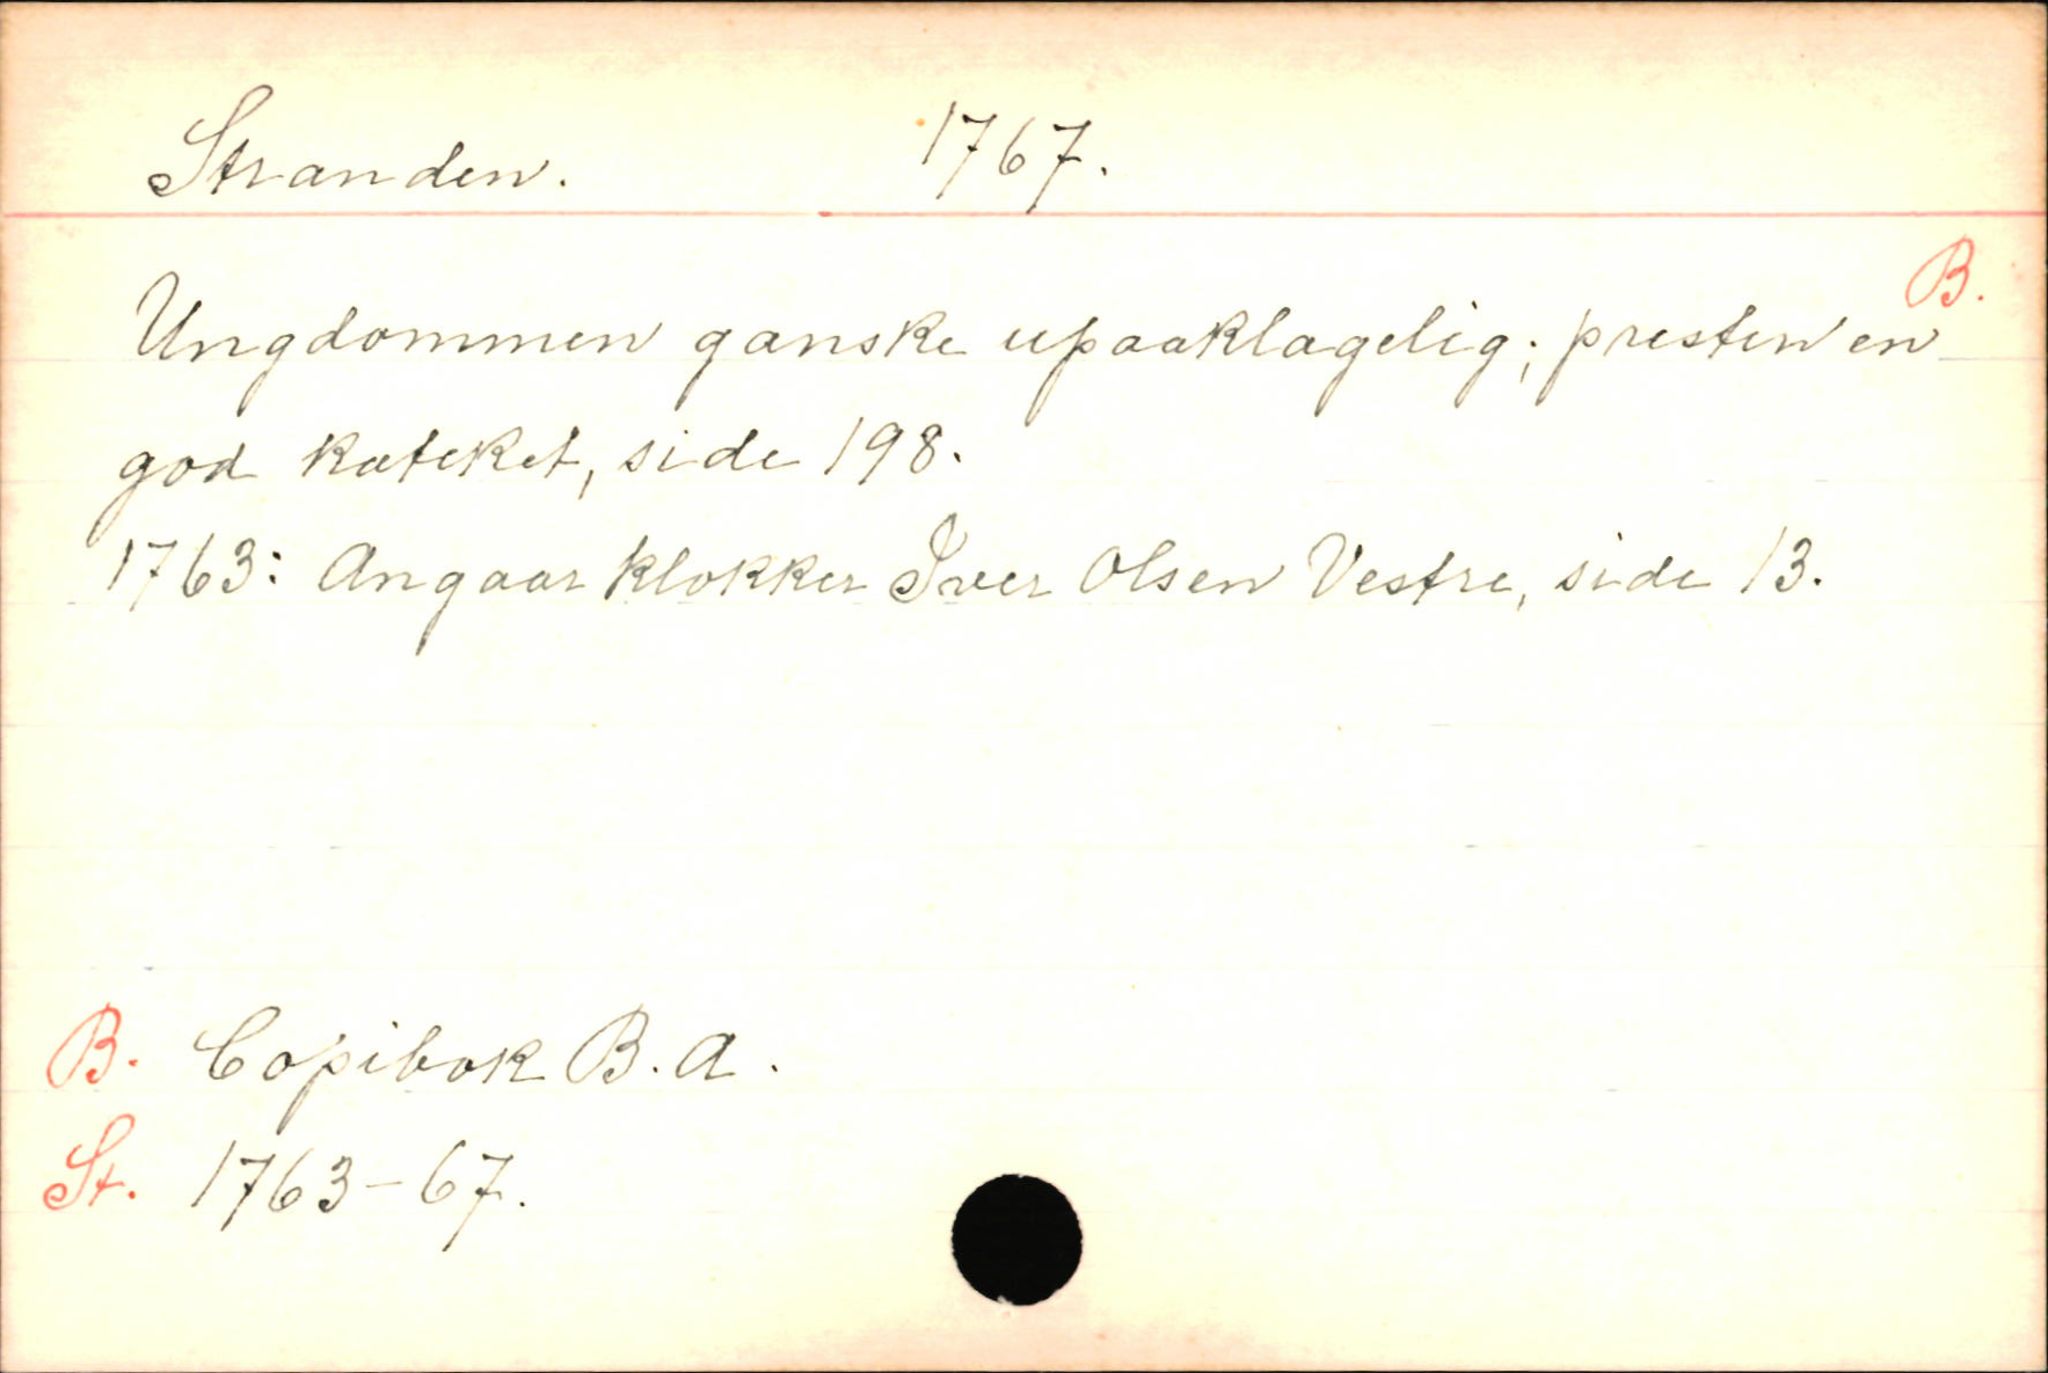 Stranden. 1767.
B.
Ungdommen ganske upaaklagelig; presten en
god kateket, side 198.
1763: Angaar klokker Iver Olsen Vestre, side 13.
B. Copibok B. A.
St. 1763-67.